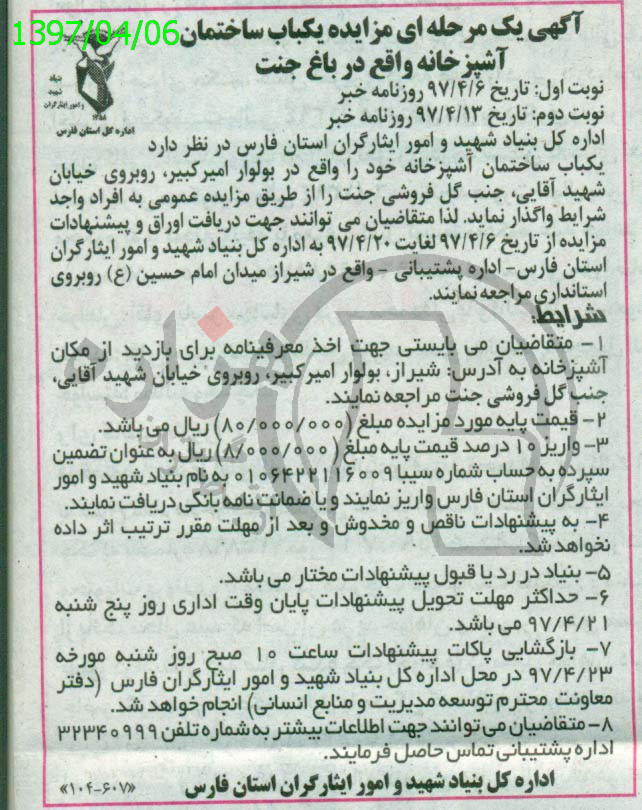 1397/04/06
آگهی یک مرحله ای مزایده یکباب ساختمان
آشپزخانه واقع در باغ جنت
بنیاد
شهید
و امور ایثارگران
اداره کل استان فارس
نوبت اول: تاریخ ۹۷/۴/۶ روزنامه خبر
نوبت دوم: تاریخ ۹۷/۴/۱۳ روزنامه خبر
اداره کل بنیاد شهید و امور ایثارگران استان فارس در نظر دارد
یکباب ساختمان آشپزخانه خود را واقع در بولوار امیرکبیر، روبروی خیابان
شهید آقایی، جنب گل فروشی جنت را از طریق مزایده عمومی به افراد واجد
شرایط واگذار نماید. لذا متقاضیان می توانند جهت دریافت اوراق و پیشنهادات
مزایده از تاریخ ۹۷/۴/۶ لغایت ۹۷/۴/۲۰ به اداره کل بنیاد شهید و امور ایثارگران
استان فارس- اداره پشتیبانی - واقع در شیراز میدان امام حسین (ع) روبروی
استانداری مراجعه نمایند.
شرایط:
۱- متقاضیان می بایستی جهت اخذ معرفینامه برای بازدید از مکان
آشپزخانه به آدرس: شیراز، بولوار امیرکبیر، روبروی خیابان شهید آقایی،
جنب گل فروشی جنت مراجعه نمایند.
۲- قیمت پایه مورد مزایده مبلغ (۸۰/۰۰۰/۰۰۰) ریال می باشد.
۳- واریز ۱۰ درصد قیمت پایه مبلغ (۸/۰۰۰/۰۰۰) ریال به عنوان تضمین
سپرده به حساب شماره سیبا ۰۱۰۶۴۲۲۱۱۶۰۰۹ به نام بنیاد شهید و امور
ایثارگران استان فارس واریز نمایند و یا ضمانت نامه بانکی دریافت نمایند.
۴- به پیشنهادات ناقص و مخدوش و بعد از مهلت مقرر ترتیب اثر داده
نخواهد شد.
۵- بنیاد در رد یا قبول پیشنهادات مختار می باشد.
۶- حداکثر مهلت تحویل پیشنهادات پایان وقت اداری روز پنج شنبه
۹۷/۴/۲۱ می باشد.
۷- بازگشایی پاکات پیشنهادات ساعت ۱۰ صبح روز شنبه مورخه
۹۷/۴/۲۳ در محل اداره کل بنیاد شهید و امور ایثارگران فارس (دفتر
معاونت محترم توسعه مدیریت و منابع انسانی) انجام خواهد شد.
۸- متقاضیان می توانند جهت اطلاعات بیشتر به شماره تلفن ۳۲۳۴۰۹۹۹
اداره پشتیبانی تماس حاصل فرمایند.
اداره کل بنیاد شهید و امور ایثارگران استان فارس
«۱۰۴-۶۰۷»